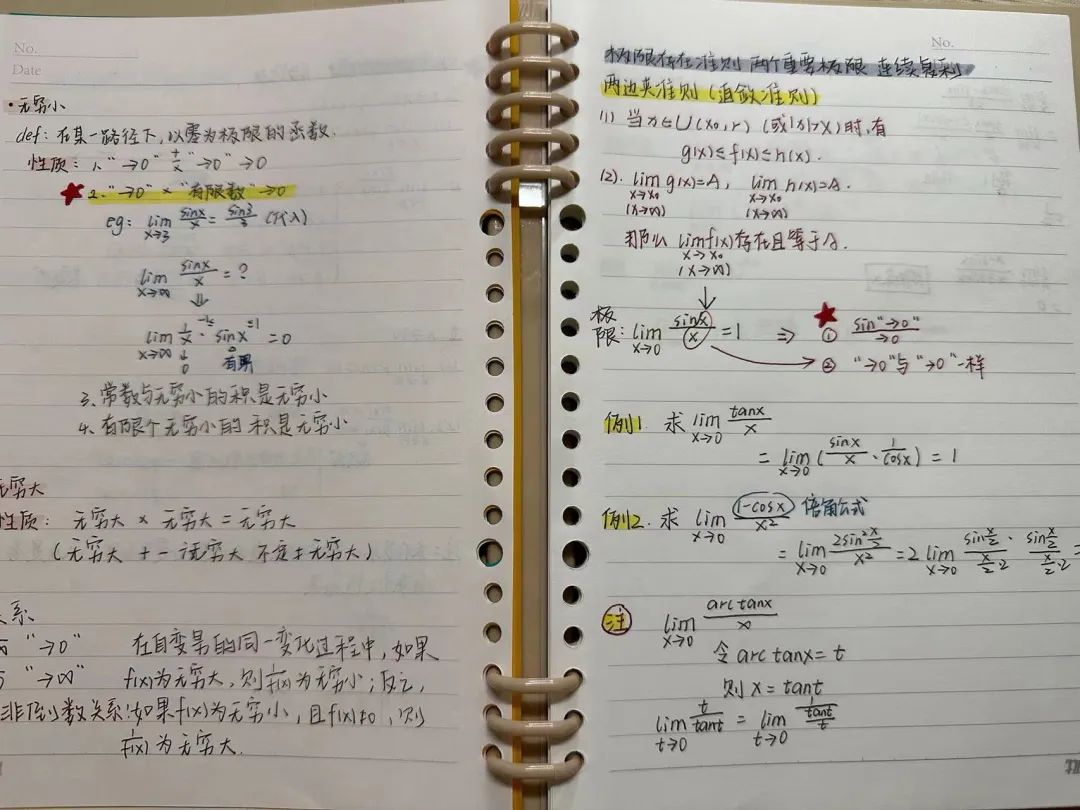 No.
Date
·无穷小
def: 在某一路径下,以零为极限的函数.
性质: 1. "→0" ± × "→0" →0
★ 2. "→0" × "有限数" →0
eg: lim x→3 sinx/x = sin3/3 (代入)
lim x→∞ sinx/x = ?
⇓
lim x→∞ 1/x · sinx = 0
0 有界
3、常数与无穷小的积是无穷小
4、有限个无穷小的积是无穷小
无穷大
性质: 无穷大 × 无穷大 = 无穷大
(无穷大 + - 无穷大 不定≠无穷大)
系
"→0" 在自变量的同一变化过程中,如果
"→∞" f(x)为无穷大,则1/f(x)为无穷小;反之,
非倒数关系:如果f(x)为无穷小,且f(x)≠0,则
1/f(x)为无穷大.
No.
极限存在准则 两个重要极限 连续复利
两边夹准则(直敛准则)
(1) 当x∈U(x₀,r) (或|x|>X)时,有
g(x)≤f(x)≤h(x).
(2). lim x→x₀ (x→∞) g(x)=A, lim x→x₀ (x→∞) h(x)=A.
那么 lim x→x₀ (x→∞) f(x)存在且等于A.
极限: lim x→0 sinx/x = 1 ⇒ ★ ① sin"→0"/→0
② "→0"与"→0"一样
例1. 求 lim x→0 tanx/x
= lim x→0 (sinx/x · 1/cosx) = 1
例2. 求 lim x→0 1-cosx/x² 倍角公式
= lim x→0 2sin²x/2/x² = 2 lim x→0 sinx/2/x/2·2 · sinx/2/x/2·2 =
注 lim x→0 arctanx/x
令 arctanx = t
则 x = tant
lim t→0 t/tant = lim t→0 1/tant/t